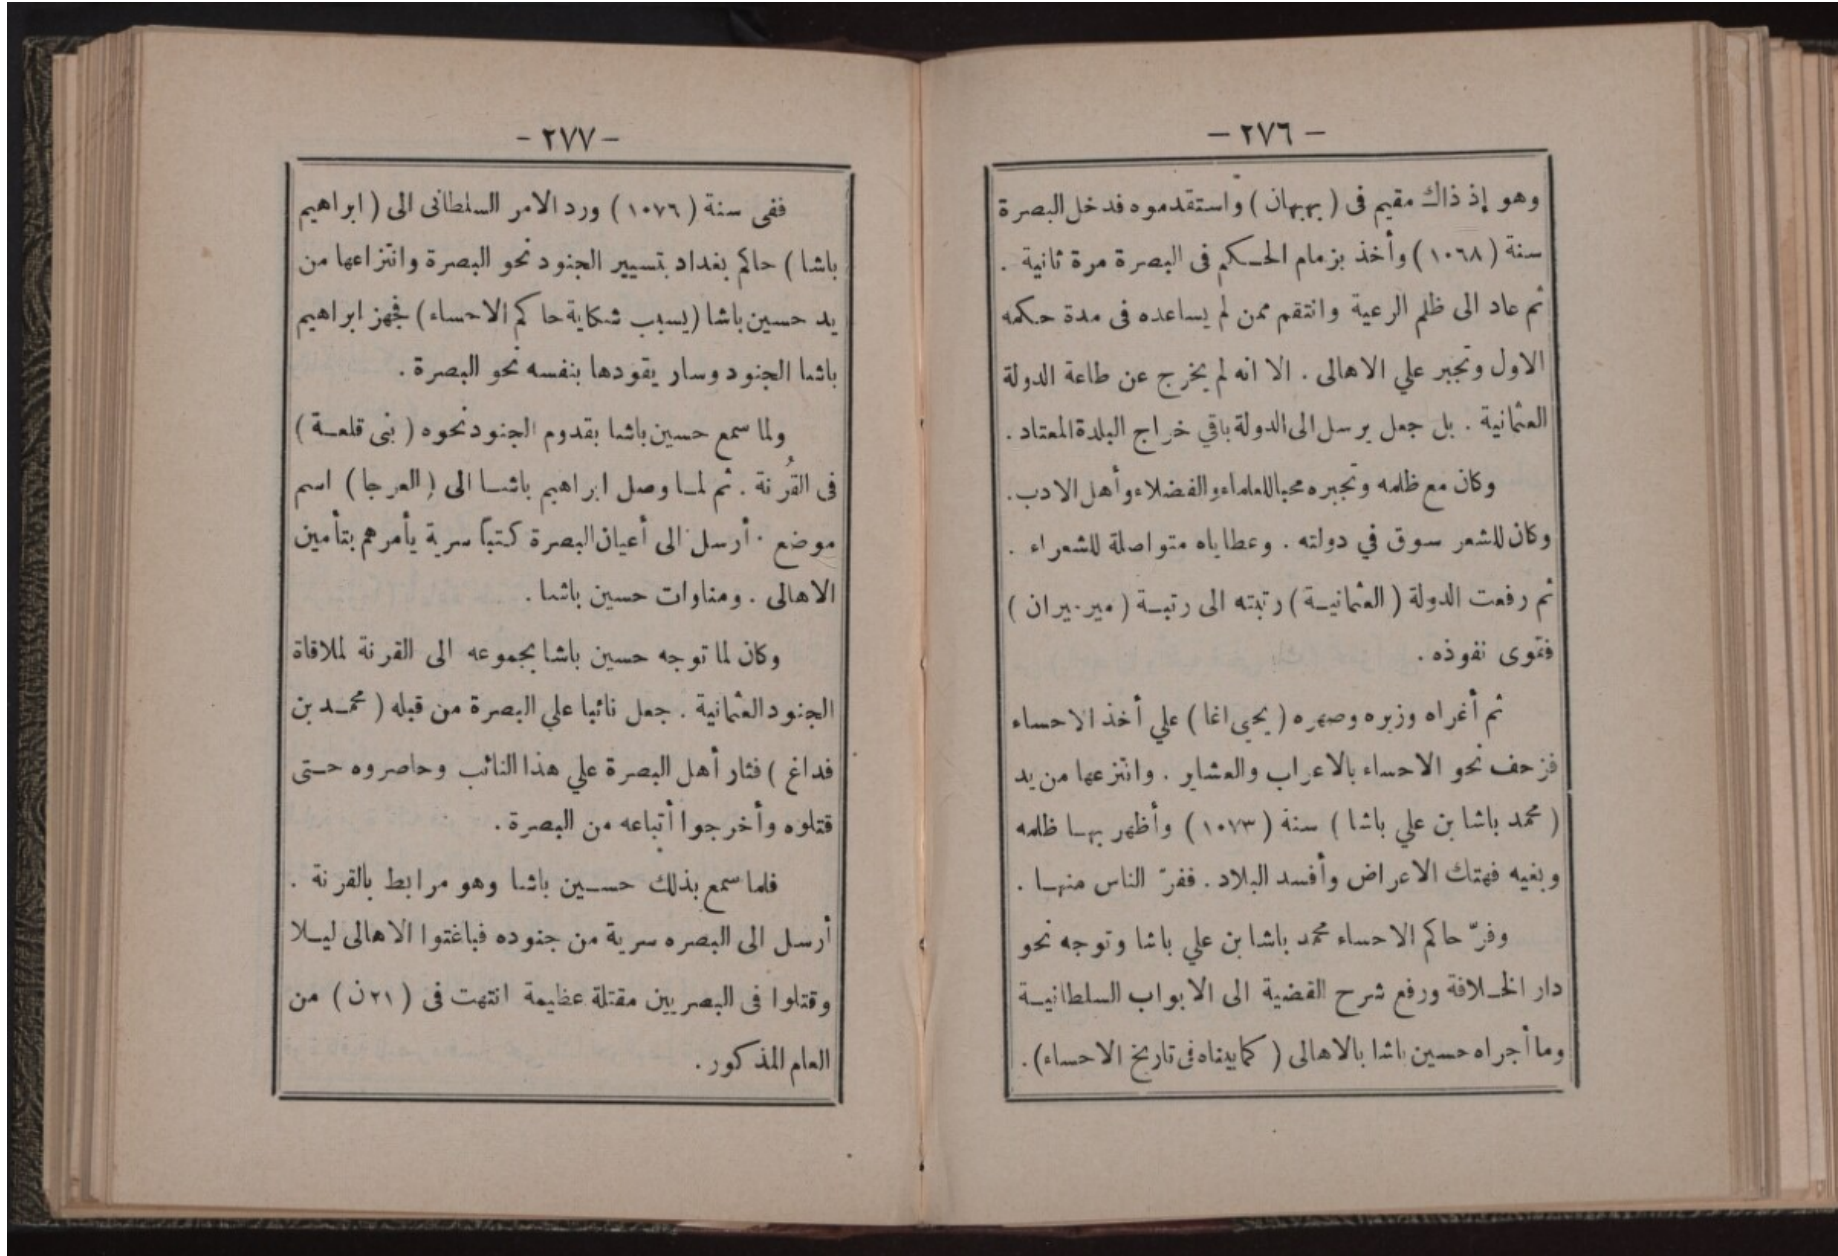 - ٢٧٦ -
وهو إذ ذاك مقيم فى ( بهبهان ) واستقدموه فدخل البصرة
سنة ( ١٠٦٨ ) وأخذ بزمام الحكم فى البصرة مرة ثانية .
ثم عاد الى ظلم الرعية وانتقم ممن لم يساعده فى مدة حكمه
الاول وتجبر علي الاهالى . الا انه لم يخرج عن طاعة الدولة
العثمانية . بل جعل يرسل الى الدولة باقي خراج البلدة المعتاد .
وكان مع ظلمه وتجبره محبا للعلماء والفضلاء وأهل الادب .
وكان للشعر سوق في دولته . وعطاياه متواصلة للشعراء .
ثم رفعت الدولة ( العثمانية ) رتبته الى رتبة ( مير ميران )
فتموى نفوذه .
ثم أغراه وزيره وصهره ( يحيى اغا ) علي أخذ الاحساء
فزحف نحو الاحساء بالاعراب والعشاير . وانتزعها من يد
( محمد باشا بن علي باشا ) سنة ( ١٠٧٣ ) وأظهر بها ظلمه
وبغيه فهتك الاعراض وأفسد البلاد . ففرّ الناس منها .
وفرّ حاكم الاحساء محمد باشا بن علي باشا وتوجه نحو
دار الخلافة ورفع شرح القضية الى الابواب السلطانية
وما أجراه حسين باشا بالاهالى ( كما بيناه فى تاريخ الاحساء ) .
- ٢٧٧ -
ففى سنة ( ١٠٧٦ ) ورد الامر السلطانى الى ( ابراهيم
باشا ) حاكم بغداد بتسيير الجنود نحو البصرة وانتزاعها من
يد حسين باشا ( بسبب شكاية حاكم الاحساء ) فجهز ابراهيم
باشا الجنود وسار يقودها بنفسه نحو البصرة .
ولما سمع حسين باشا بقدوم الجنود نحوه ( بنى قلعة )
فى القُرنة . ثم لما وصل ابراهيم باشا الى ( العرجا ) اسم
موضع . أرسل الى أعيان البصرة كتباً سرية يأمرهم بتأمين
الاهالى . ومناوات حسين باشا .
وكان لما توجه حسين باشا بجموعه الى القرنة لملاقاة
الجنود العثمانية . جعل نائبا علي البصرة من قبله ( محمد بن
فداغ ) فثار أهل البصرة علي هذا النائب وحاصروه حتى
قتلوه وأخرجوا أتباعه من البصرة .
فلما سمع بذلك حسين باشا وهو مرابط بالقرنة .
أرسل الى البصره سرية من جنوده فباغتوا الاهالى ليلا
وقتلوا فى البصريين مقتلة عظيمة انتهت فى ( ٢١ ن ) من
العام المذكور .